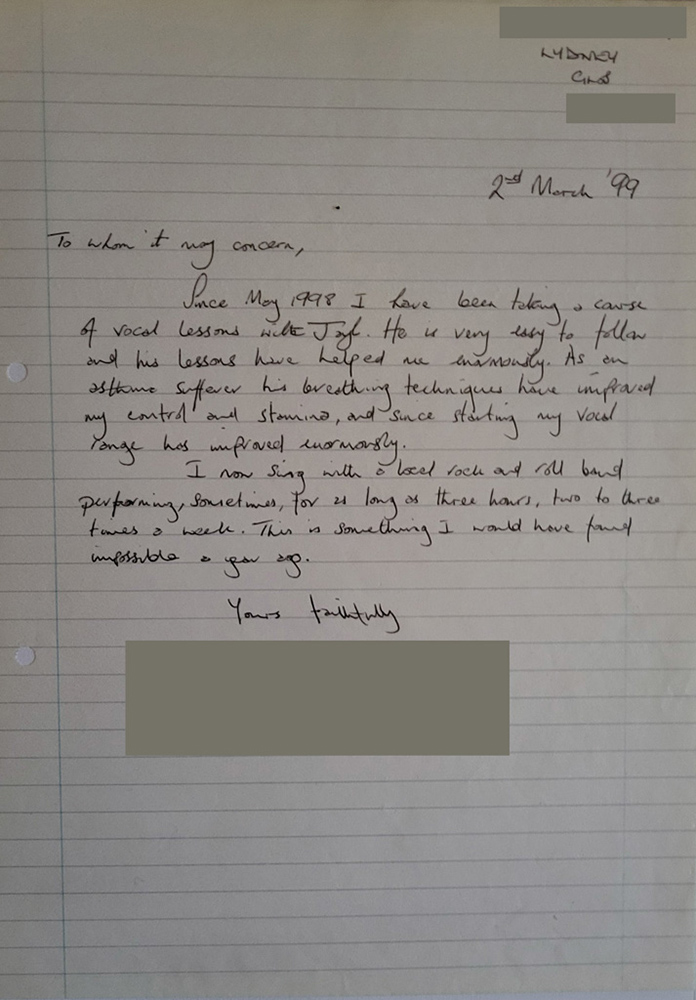 LYDNEY
GLOS
2nd March '99
To whom it may concern,
Since May 1998 I have been taking a course
of vocal lessons with. He is very easy to follow
and his lessons have helped me enormously. As an
asthma sufferer his breathing techniques have improved
my control and stamina, and since starting my vocal
range has improved enormously.
I now sing with a local rock and roll band
performing, sometimes, for as long as three hours, two to three
times a week. This is something I would have found
impossible a year ago.
Yours faithfully